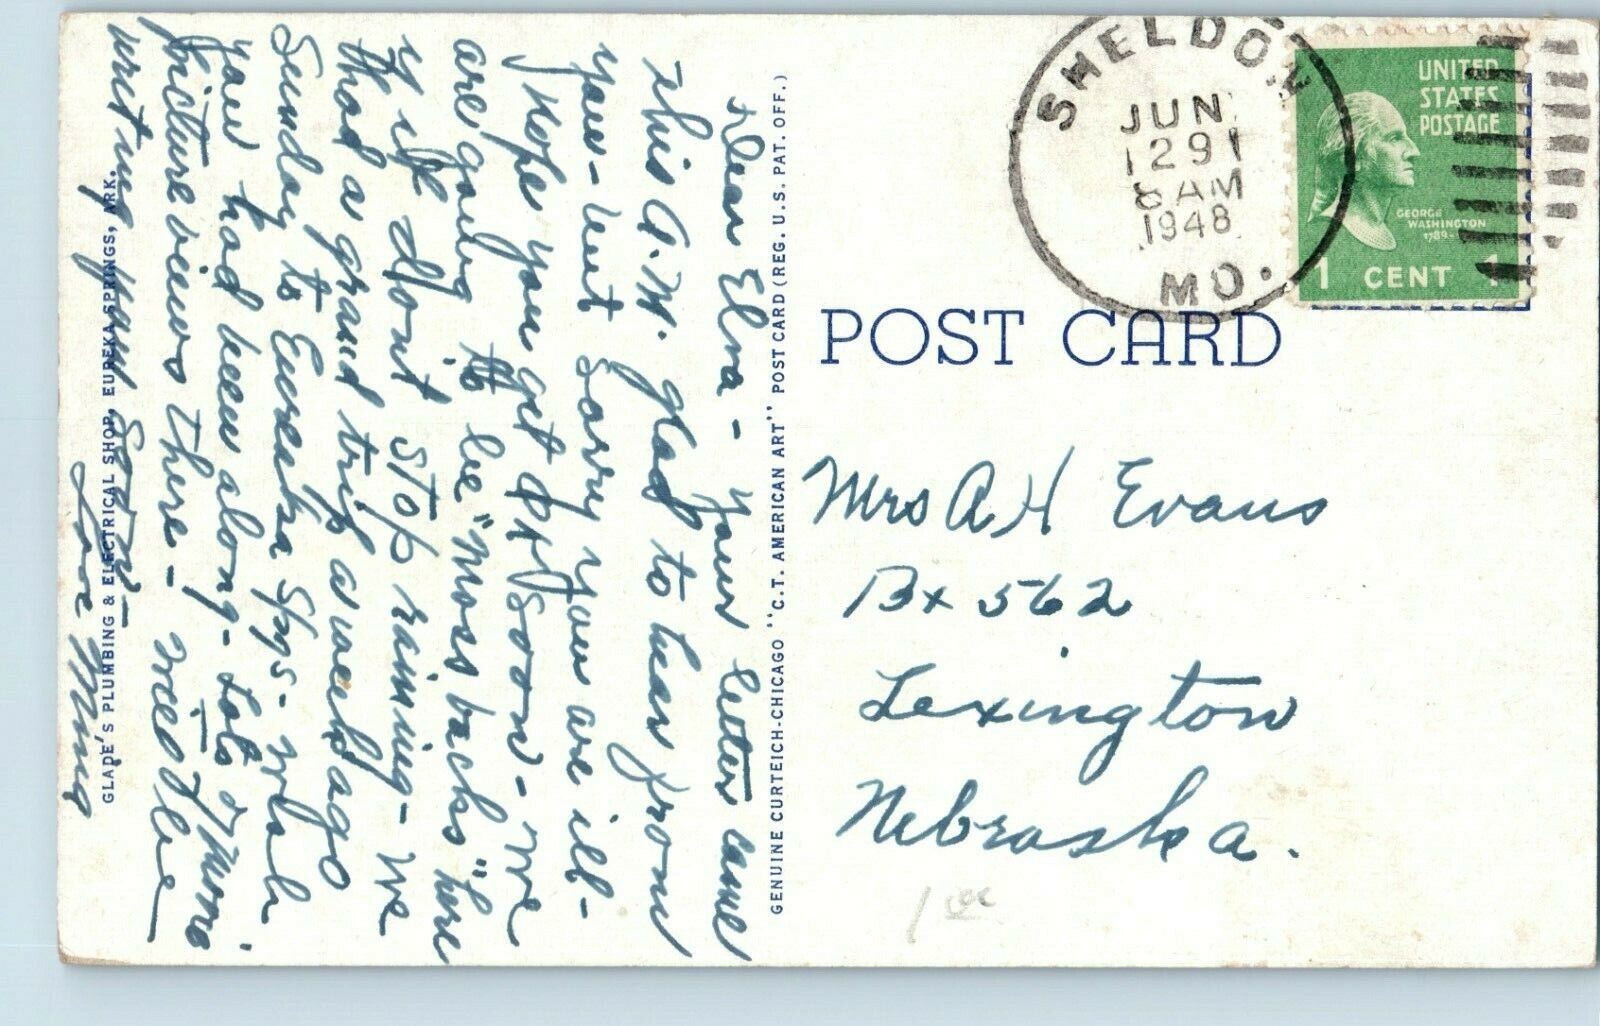 Dear Elva - your letter came
this A.M. glad to hear from
you - but sorry you are ill -
Hope you get OK soon - we
are going to be "Moss backs" here
if it don't stop raining - We
had a grand trip a week ago
Sunday to Eureka Spgs - wish
you had been along - Lots of
picture views there - Will be
writing you soon -
Love
GLADE'S PLUMBING & ELECTRICAL SHOP, EUREKA SPRINGS, ARK.
GENUINE CURTEICH-CHICAGO "C.T. AMERICAN ART" POST CARD (REG. U.S. PAT. OFF.)
POST CARD
SHELDON
JUN
29
8 AM
1948
MO.
UNITED
STATES
POSTAGE
GEORGE
WASHINGTON
1789-
1 CENT 1
Mrs A H Evans
Bx 562
Lexington
Nebraska.
1 00